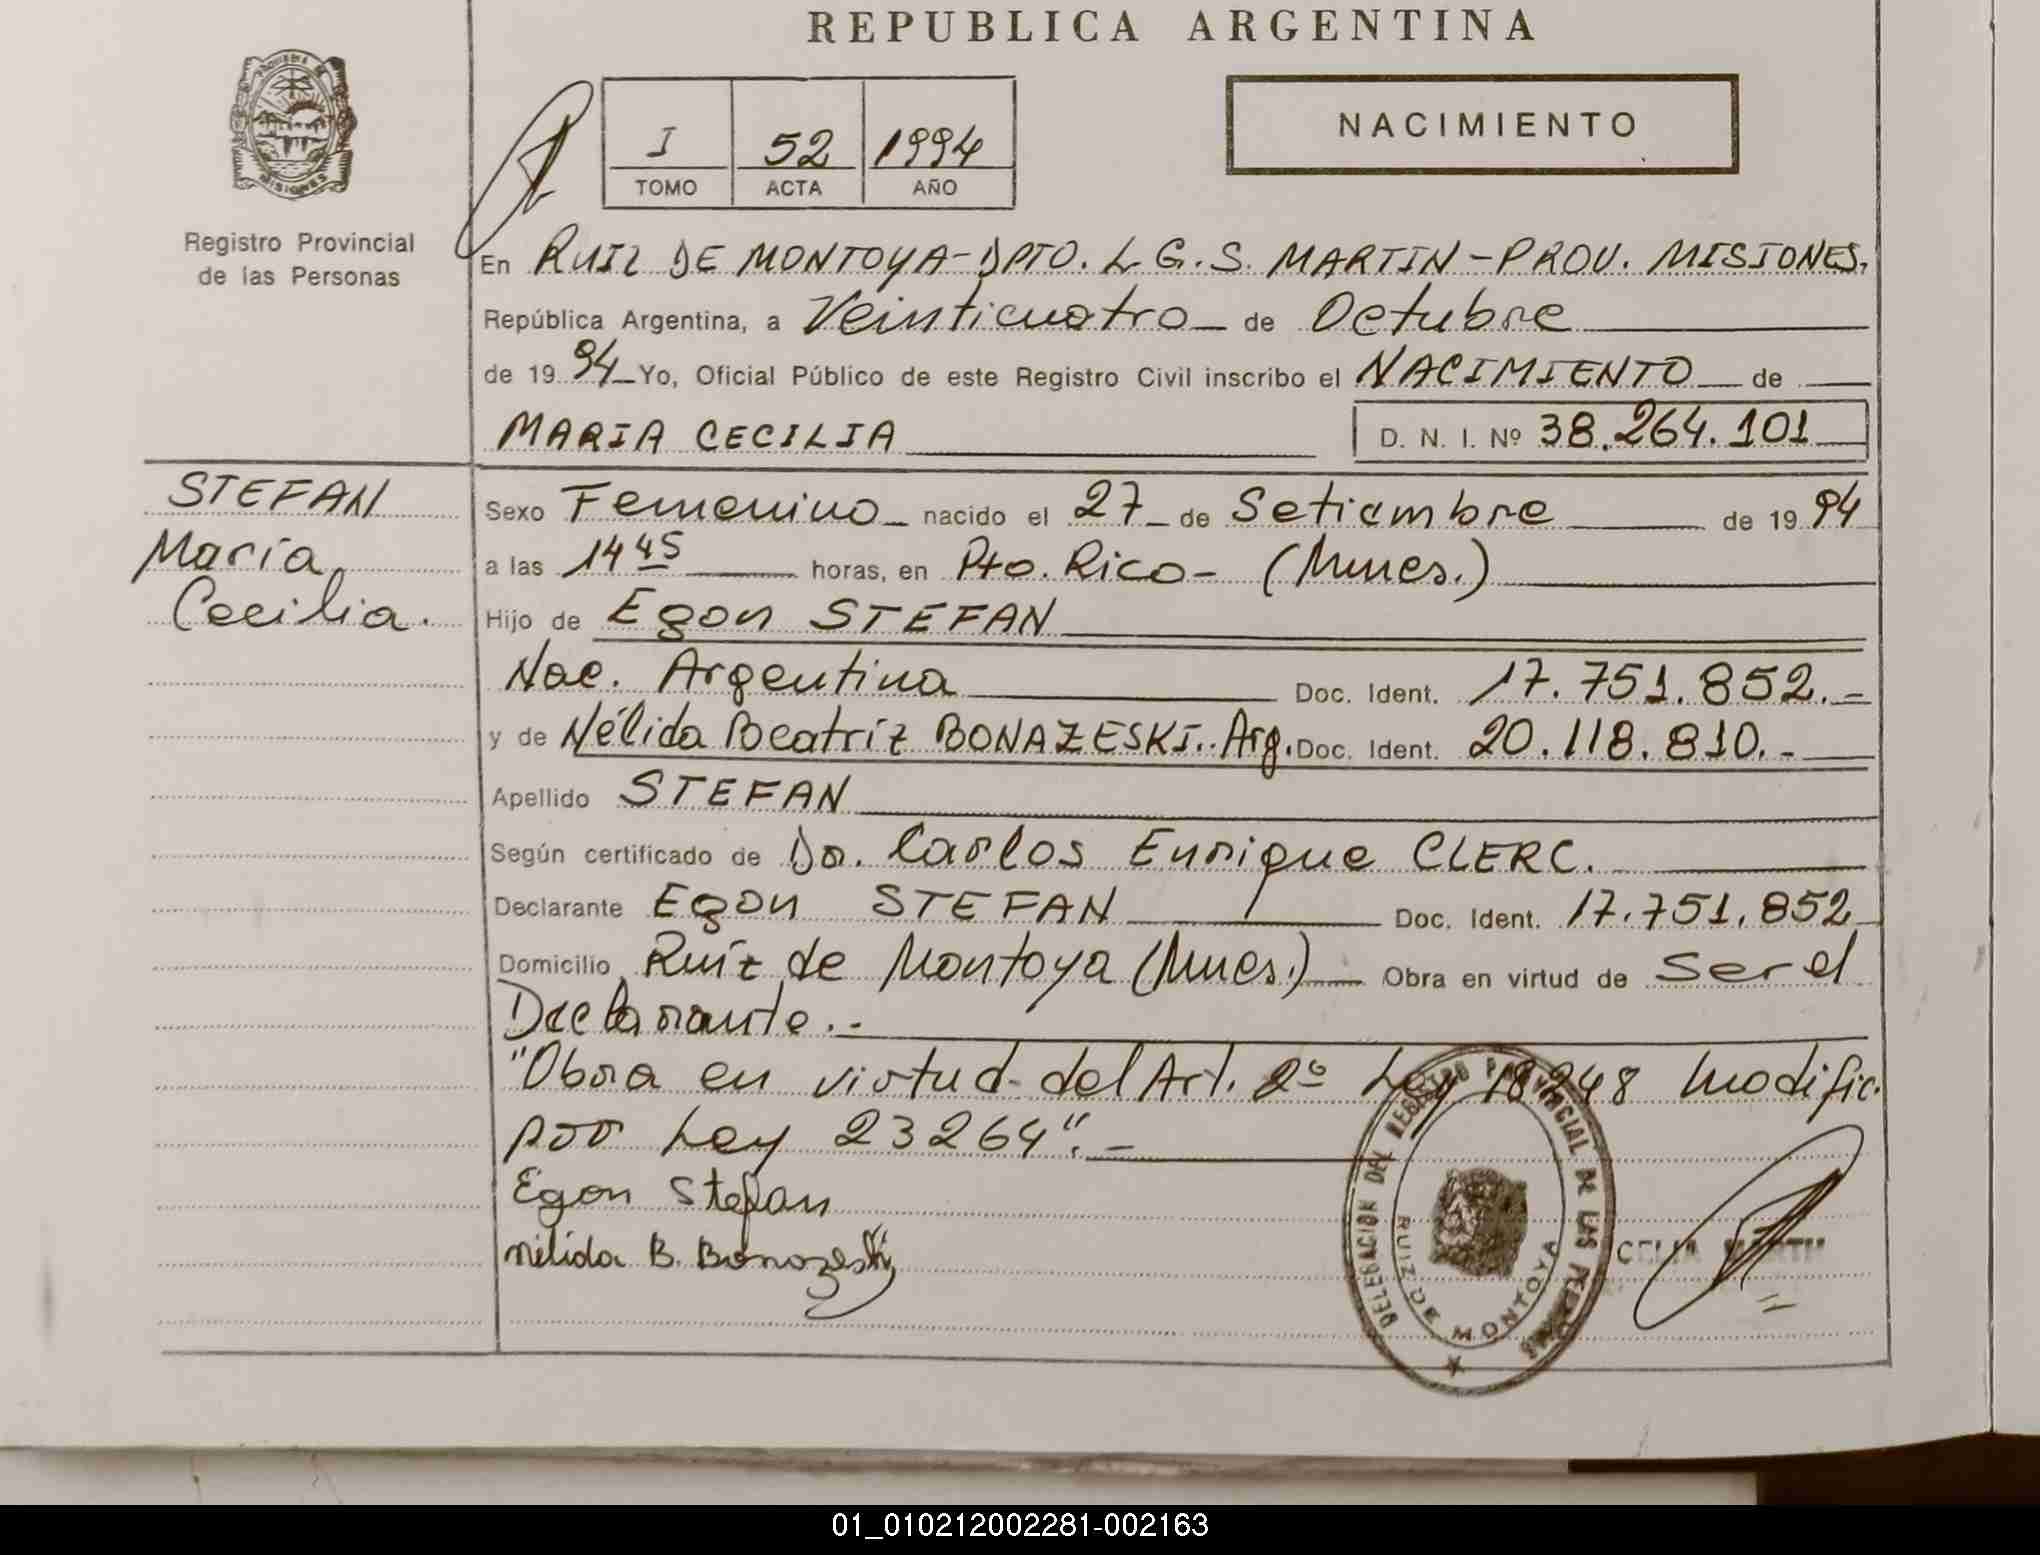 REPUBLICA ARGENTINA
PROVINCIA DE
MISIONES
Registro Provincial
de las Personas
I 52 1994
TOMO ACTA AÑO
NACIMIENTO
En RUIZ DE MONTOYA-DPTO. L.G.S. MARTIN-PROV. MISIONES.
República Argentina, a Veinticuatro de Octubre
de 19 94 Yo, Oficial Público de este Registro Civil inscribo el NACIMIENTO de
MARIA CECILIA D. N. I. Nº 38.264.101
STEFAN
María
Cecilia.
Sexo Femenino nacido el 27 de Setiembre de 19 94
a las 14 45 horas, en Pto. Rico- (Mnes.)
Hijo de Egon STEFAN
Nac. Argentina Doc. Ident. 17.751.852.-
y de Nélida Beatríz BONAZESKI.. Arg. Doc. Ident. 20.118.810.-
Apellido STEFAN
Según certificado de Dr. Carlos Enrique CLERC.
Declarante Egon STEFAN Doc. Ident. 17.751.852
Domicilio Ruíz de Montoya (Mnes.) Obra en virtud de ser el
Declarante.-
"Obra en virtud del Art. 2º Ley 18248 modific.
por Ley 23264".-
Egon Stefan
Nélida B. Bonazeski
DELEGACION DEL REGISTRO PROVINCIAL DE LAS PERSONAS
RUIZ DE MONTOYA
CELIA
01_010212002281-002163